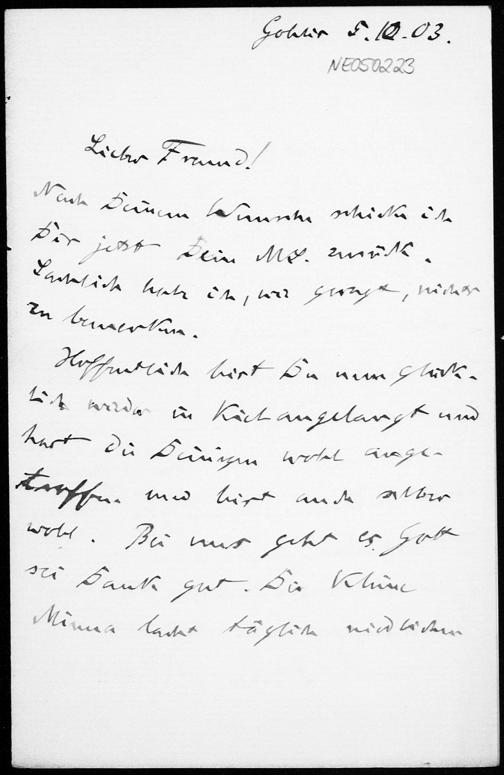 Gohlis 5.10.03.
NE050223
Lieber Freund!
Nach Deinem Wunsche schicke ich
Dir jetzt Dein MS. zurück.
Sachlich habe ich, wie gesagt, nichts
zu bemerken.
Hoffentlich bist Du nun glück-
lich wieder in Kiel angelangt und
hast die Deinigen wohl ange-
troffen und bist auch selber
wohl. Bei uns geht es Gott
sei Dank gut. Die kleine
Minna lacht täglich niedlicher